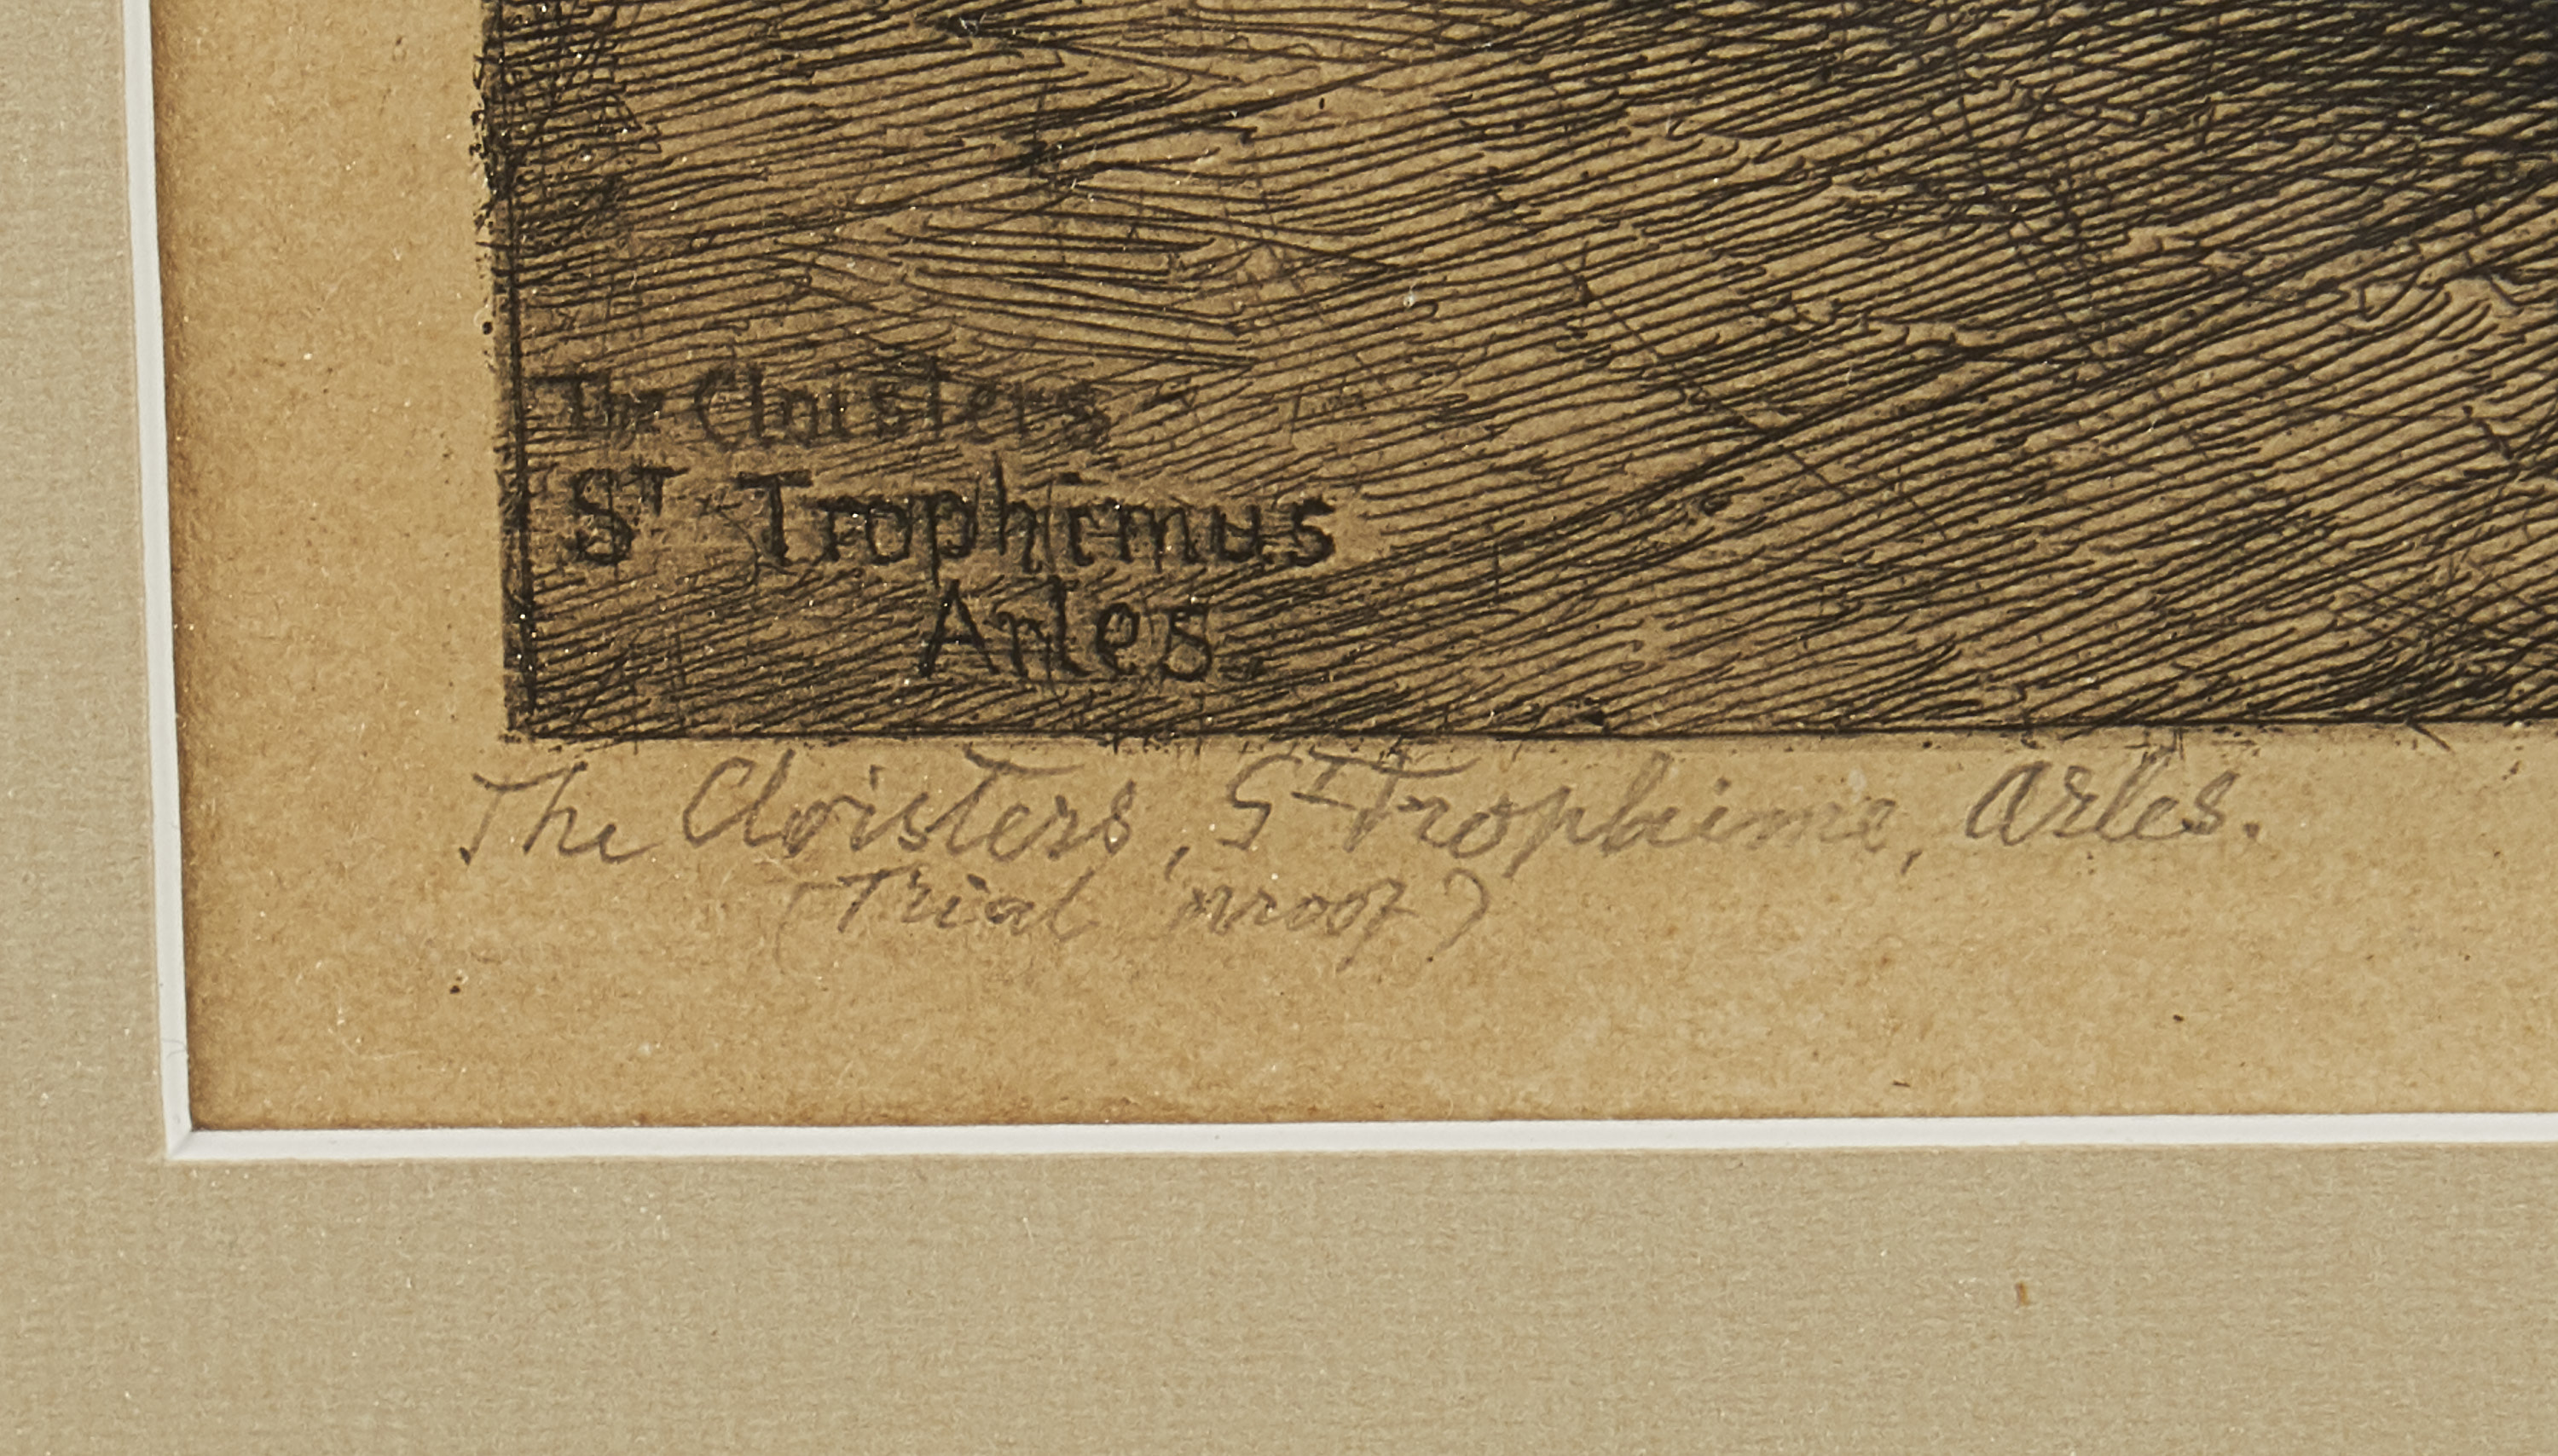 The Cloisters
ST Trophimus
Arles.
The Cloisters, St Trophime, Arles.
(Trial proof)